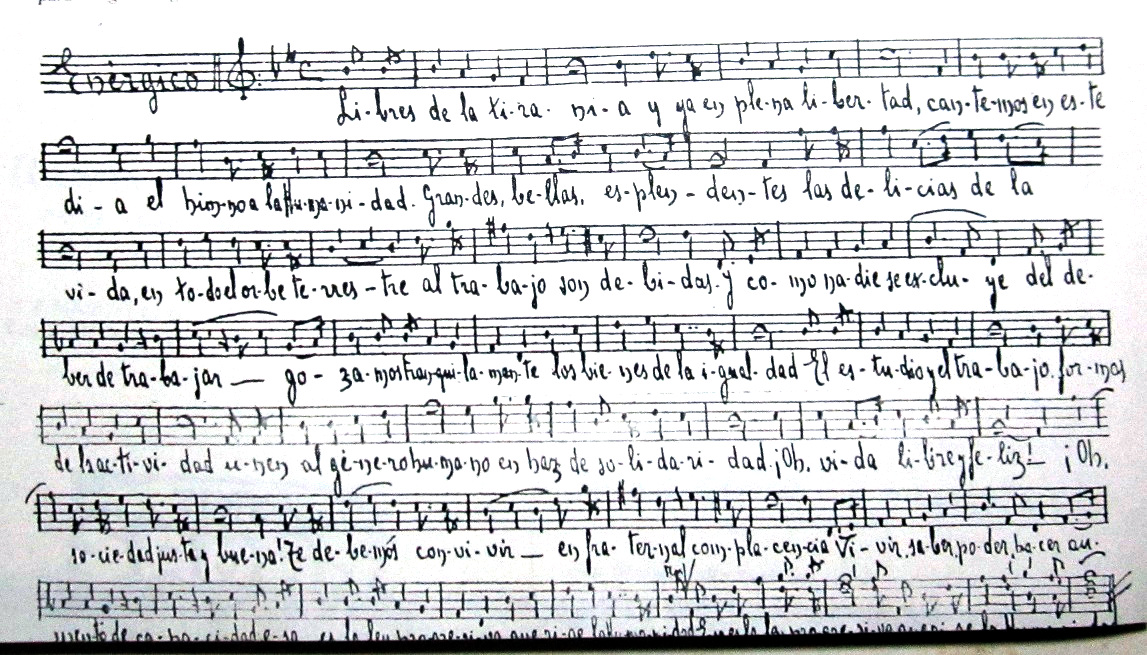 Enérgico
Li-bres de la ti-ra- ní-a y ya en ple-na li-ber- tad, can-te-mos en es-te
di-a el him-no a la Hu-ma-ni-dad. Gran-des, be-llas, es-plen-den-tes las de-li-cias de la
vi-da, en to-do el or-be te-rres-tre al tra-ba-jo son de-bi-das. Y co-mo na-die se ex-clu-ye del de-
ber de tra-ba-jar — go-za-mos tran-qui-la-men-te los bie-nes de la i-gual-dad El es-tu-dio y el tra-ba-jo, for-mas
de la ac-ti-vi-dad u-nen al gé-ne-ro hu-ma-no en haz de so-li-da-ri-dad. ¡Oh, vi-da li-bre y fe-liz! — ¡Oh,
so-cie-dad jus-ta y bue-na! Te de-be-mos con-vi-vir — en fra-ter-nal com-pla-cen-cia Vi-vir, sa-ber, po-der, ha-cer au-
mento de ca-pa-ci-dad e-sa es la ley pro-gre-si-va que ri-ge la Hu-ma-ni-dad